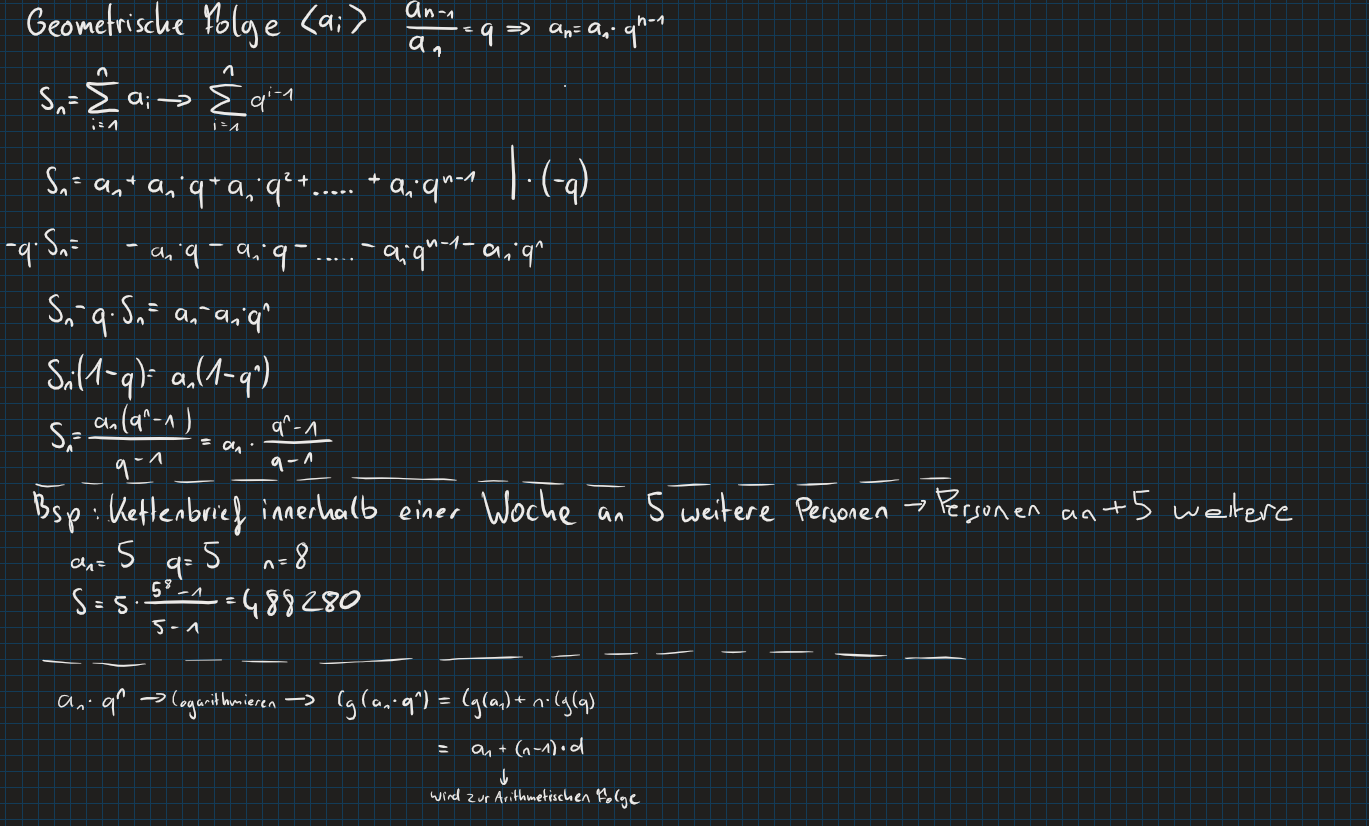 Geometrische Folge ⟨aᵢ⟩ aₙ₋₁/a₁ = q ⇒ aₙ = a₁·qⁿ⁻¹
Sₙ = ∑ᵢ₌₁ⁿ aᵢ → ∑ᵢ₌₁ⁿ qⁱ⁻¹
Sₙ = a₁ + a₁·q + a₁·q² + ..... + a₁·qⁿ⁻¹ | ·(-q)
-q·Sₙ = - a₁·q - a₁·q - ..... - a₁·qⁿ⁻¹ - a₁·qⁿ
Sₙ - q·Sₙ = a₁ - a₁·qⁿ
Sₙ·(1-q) = a₁(1-qⁿ)
Sₙ = a₁(qⁿ-1)/(q-1) = a₁ · (qⁿ-1)/(q-1)
Bsp: Kettenbrief innerhalb einer Woche an 5 weitere Personen → Personen an +5 weitere
a₁ = 5 q = 5 n = 8
S = 5 · (5⁸-1)/(5-1) = 488280
a₁·qⁿ → logarithmieren → lg(a₁·qⁿ) = lg(a₁) + n·lg(q)
= a₁ + (n-1)·d
↓
wird zur Arithmetischen Folge